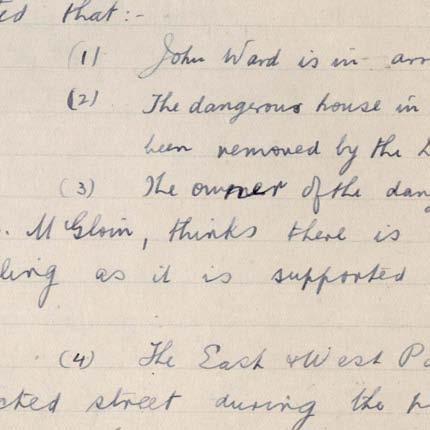 ted that:-
(1) John Ward is in arr
(2) The dangerous house in
been removed by the
(3) The owner of the dang
. McGloin, thinks there is
ling as it is supported
(4) The East & West Pa
cted street during the p